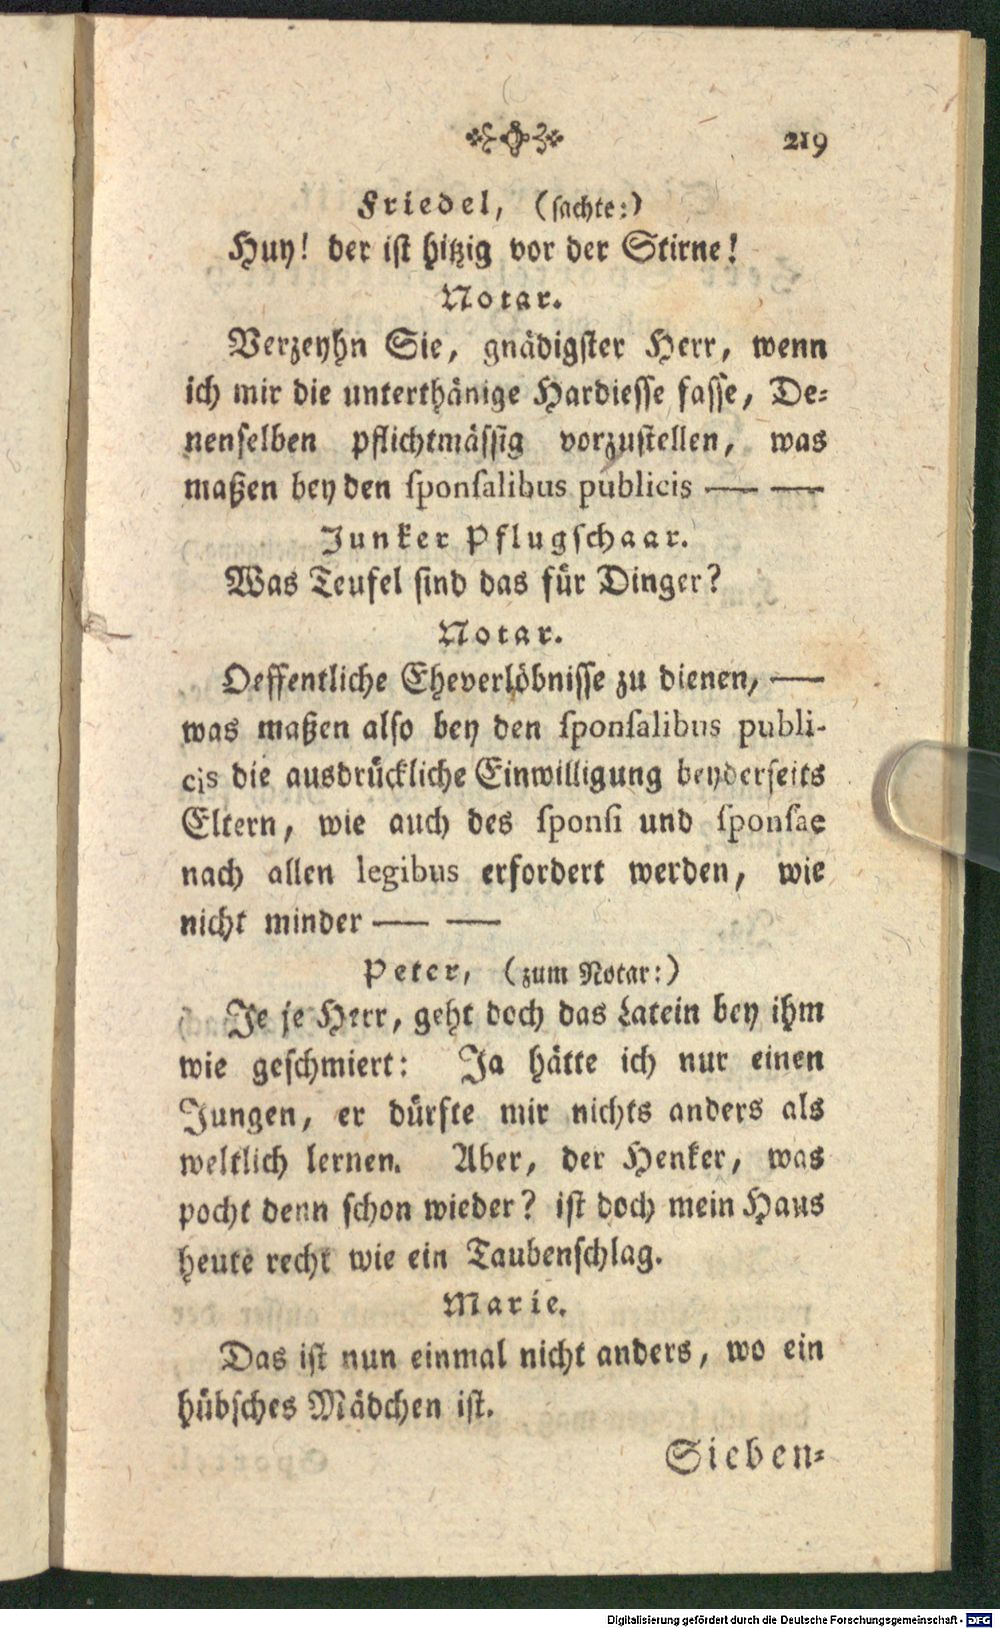 219
Friedel, (sachte:)
Huy! der ist hitzig vor der Stirne!
Notar.
Verzeyhn Sie, gnädigster Herr, wenn
ich mir die unterthänige Hardiesse fasse, De-
nenselben pflichtmässig vorzustellen, was
maßen bey den sponsalibus publicis — —
Junker Pflugschaar.
Was Teufel sind das für Dinger?
Notar.
Oeffentliche Eheverlöbnisse zu dienen, —
was maßen also bey den sponsalibus publi-
cis die ausdrückliche Einwilligung beyderseits
Eltern, wie auch des sponsi und sponsae
nach allen legibus erfordert werden, wie
nicht minder — —
Peter, (zum Notar:)
Je je Herr, geht doch das Latein bey ihm
wie geschmiert: Ja hätte ich nur einen
Jungen, er dürfte mir nichts anders als
weltlich lernen. Aber, der Henker, was
pocht denn schon wieder? ist doch mein Haus
heute recht wie ein Taubenschlag.
Marie.
Das ist nun einmal nicht anders, wo ein
hübsches Mädchen ist.
Sieben-
Digitalisierung gefördert durch die Deutsche Forschungsgemeinschaft - DFG